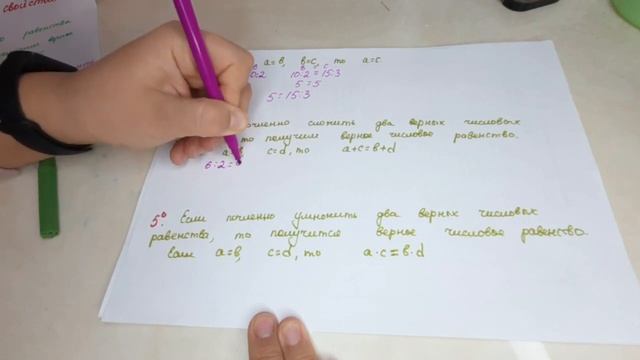 свойств
равенства
a=b, b=c, то a=c.
0:2 10:2=15:3
5=5
5=15:3
почленно сложить два верных числовых
то получим верное числовое равенство.
a=b, c=d, то a+c=b+d
6:2=
5°. Если почленно умножить два верных числовых
равенства, то получится верное числовое равенство.
Если a=b, c=d, то a·c=b·d